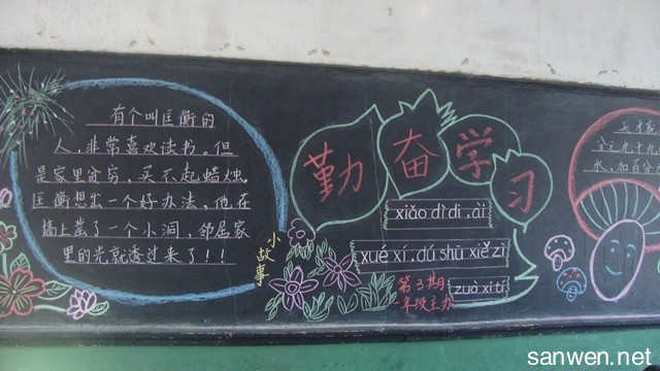 有个叫匡衡的
人，非常喜欢读书。但
是家里很穷，买不起蜡烛。
匡衡想出一个好办法，他在
墙上凿了一个小洞，邻居家
里的光就透过来了！！！
小故事
勤奋学习
xiǎo dì di, ài
xué xí, dú shū xiě zì
zuò xí tí
第3期
年级主办
sanwen.net